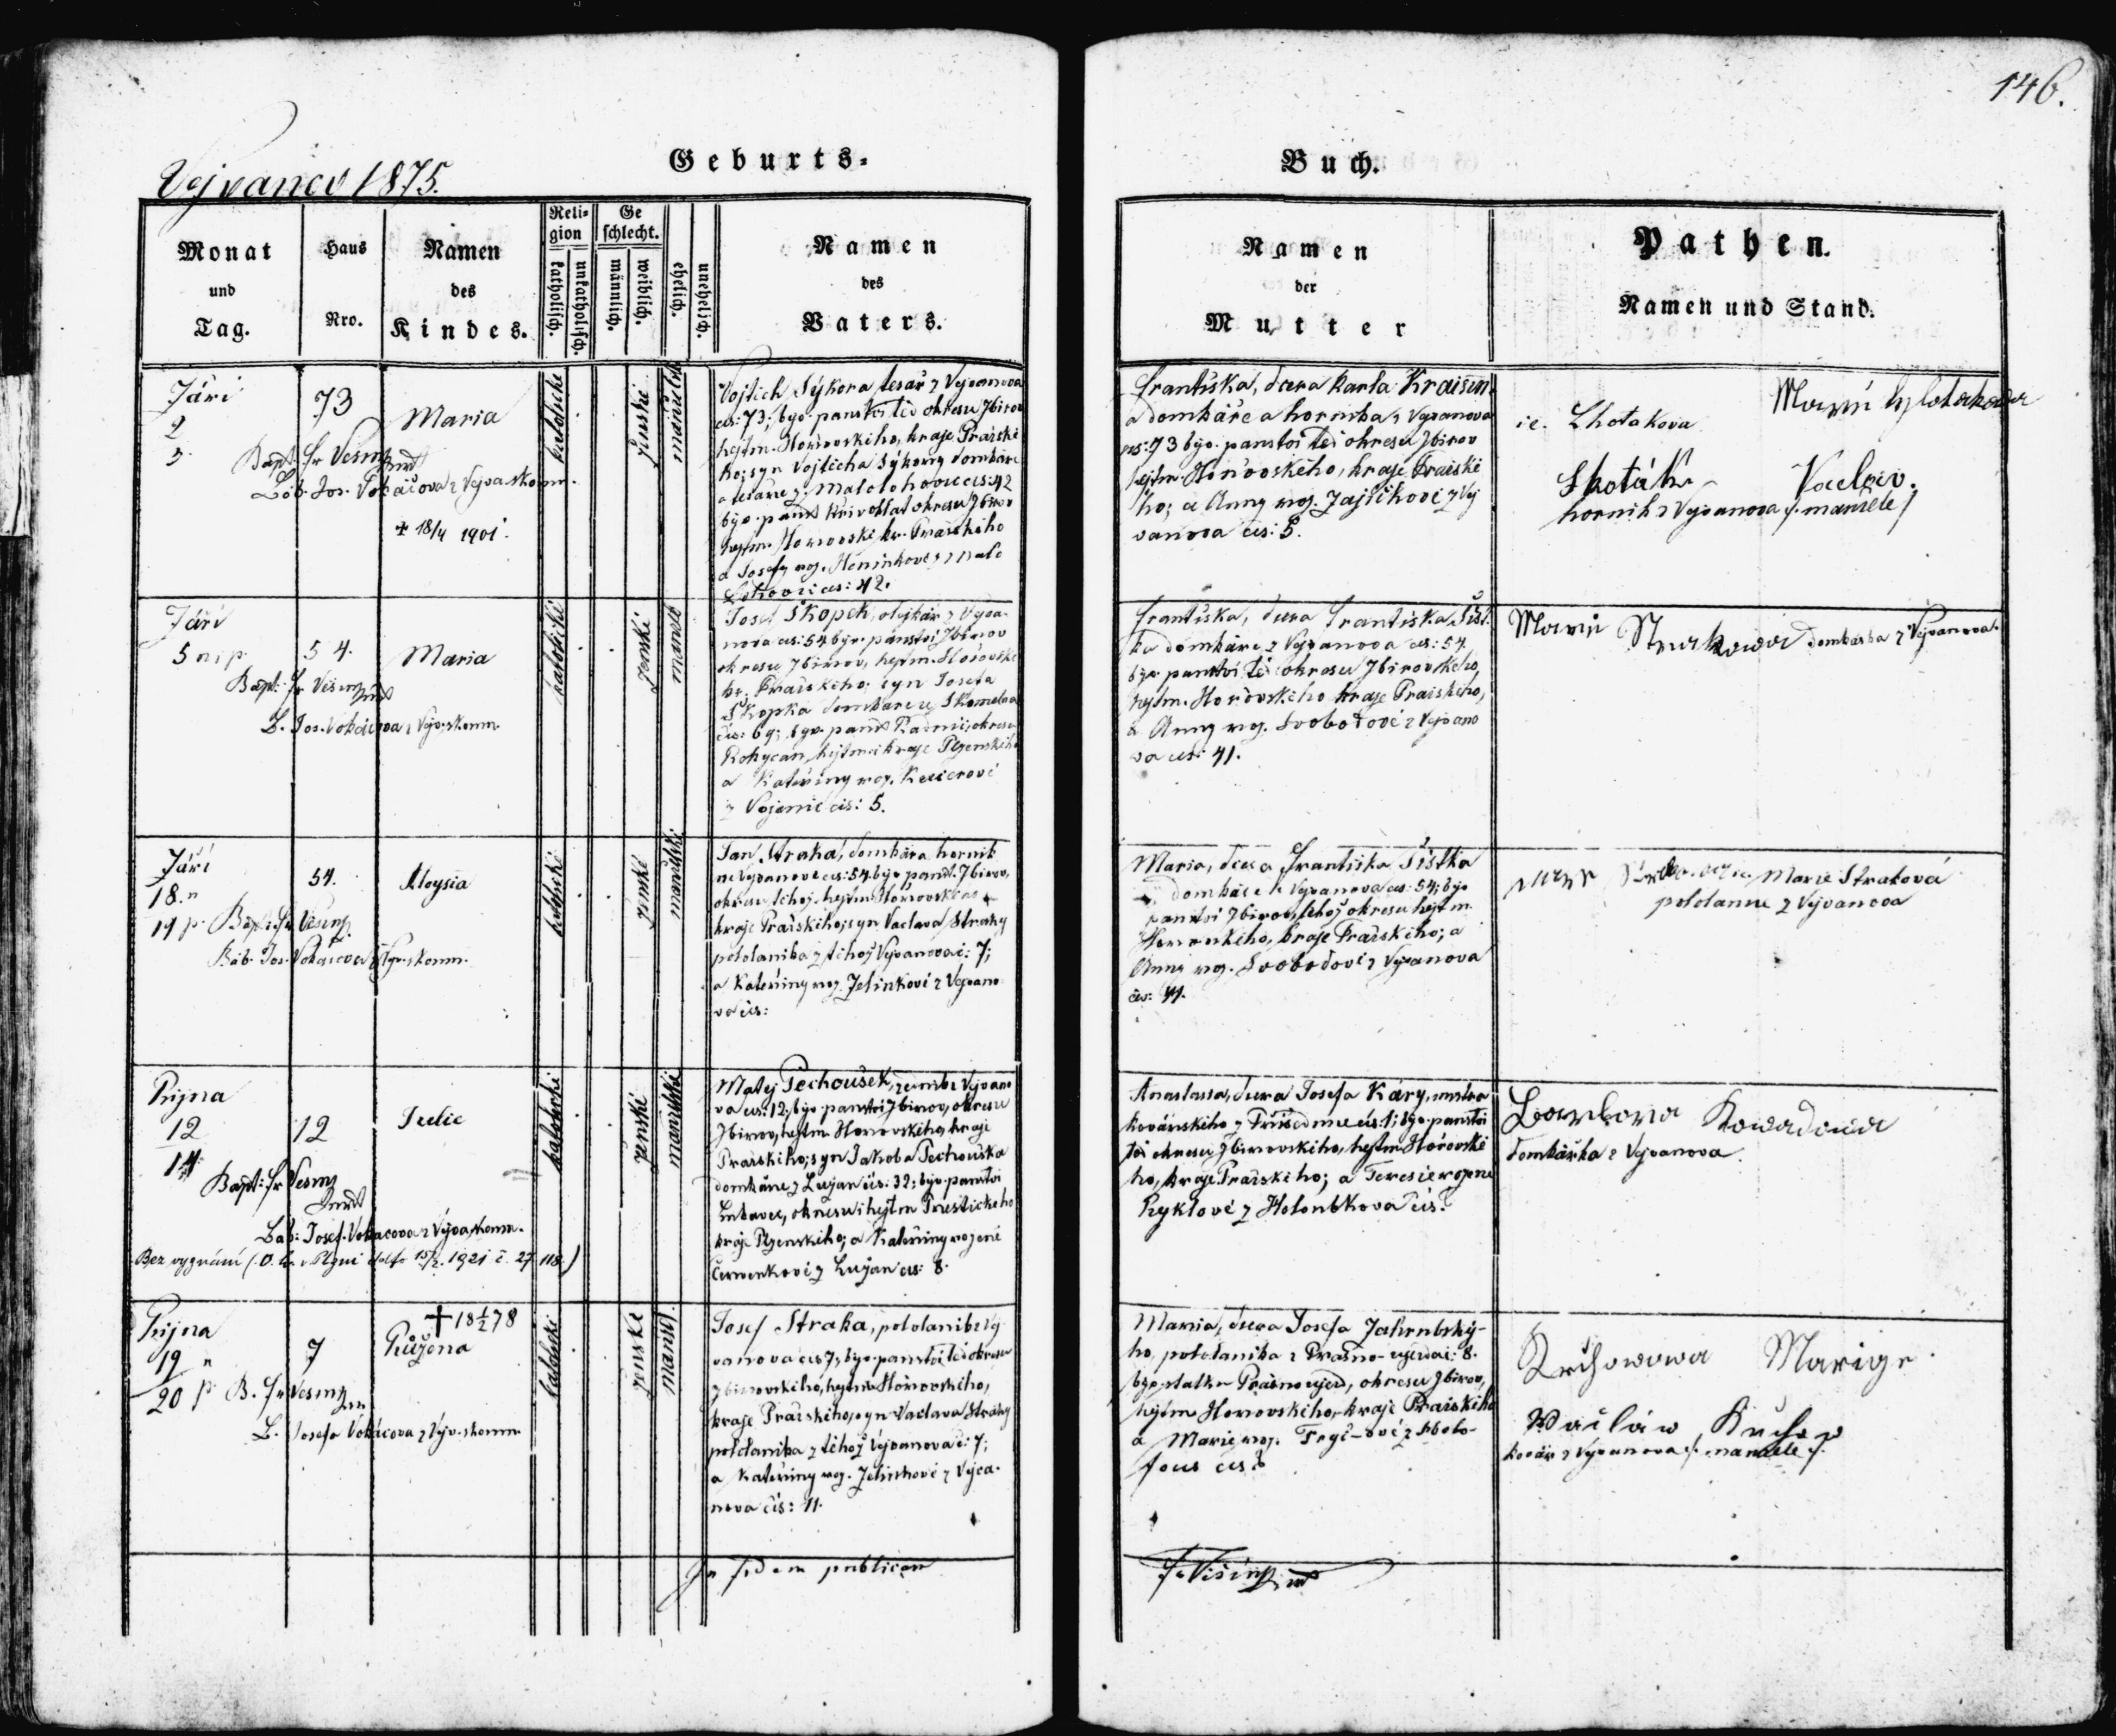 146.
Vejvanov 1875.
Geburts-
Buch.
Monat und Tag.
Haus Nro.
Namen des Kindes.
Religion
katholisch.
unkatholisch.
Geschlecht.
männlich.
weiblich.
ehelich.
unehelich.
Namen des Vaters.
Namen der Mutter
Pathen.
Namen und Stand.
Září
2
3
73
Maria
Bapt. Fr Vesiny
Báb. Jos. Vokáčova z Vejva. skoum.
+ 18/4 1901.
katolické
ženské
manželské
Vojtěch Sýkora tesař z Vejvanova
čís: 73; býv. panství též okresu Zbirov
hejtm. Hořovského, kraje Pražské
ho; syn Vojtěcha Sýkory domkáře
a tesaře z Malolohovic čís: 42
býv. panst Křivoklat okresu Zbirov
hejtm. Hořovské kr. Pražského
a Josefy roz. Heninkové z Malo
Lohovic čís: 42.
Františka, dcera Karla Kraisin
a domkáře a horníka z Vejvanova
čís: 73 býv. panství též okresu Zbirov
hejtm. Hořovského, kraje Pražské
ho; a Anny roz. Zajíčkové z Vej
vanova čís: 5.
Lhotakova
Vaclav
horník z Vejvanova /: manželé /
Září
5
54.
Maria
Bapt. Fr Vesiny
B. Jos. Vokáčova z Vejv. skoum.
katolické
ženské
manžel
Josef Škopek, olejkář z Vejva-
nova čís: 54 býv. panství Zbirov
okresu Zbirov, hejtm. Hořovské
kr. Pražského; syn Josefa
Škopka domkáře z Skomelna
čís: 69; býv. panst Radnic; okresu
Rokycan, hejtm. i kraje Plzenského
a Kateřiny roz.
z Vejenic čís: 5.
Františka, dcera Františka Šist-
ka domkáře z Vejvanova čís: 54.
býv. panství též okresu Zbirovského,
hejtm. Hořovského kraje Pražského,
a Anny roz. Svobodové z Vejvano
va čís: 41.
Marie Strakowa domkářka z Vejvanova.
Září
18.
19
54.
Aloysia
Bapt. Fr Vesiny
Báb. Jos. Vokáčova z Vejv. skoum.
katolické
ženské
manželské
Jan Straka, domkář a horník
ne Vejvanově čís: 54. býv panst. Zbirov,
okresu téhož, hejtm. Hořovského
kraje Pražského; syn Vaclava Straky
pololaníka z téhož Vejvanova č: 7;
a Kateřiny roz. Jelínkové z Vejvano
va čís:
Maria, dcera Františka Šistka
domkáře z Vejvanova čís: 54; býv
panství Zbirov, téhož okresu hejtm.
Hořovského, kraje Pražského; a
Anny roz. Svobodové z Vejvanova
čís: 41.
Marie Straková
pololanice z Vejvanova
Října
12
14
12
Julie
Bapt: Fr Vesiny
Báb: Josef. Vokáčova z Vejva. skoum.
Bez vyznání (O. h. v Plzni dto 15/2. 1921 č. 27 118.)
katolické
ženské
manželské
Matěj Pechoušek, z Vejvano
va čís: 12; býv. panství Zbirov, okresu
Zbirov, hejtm. Hořovského, kraje
Pražského; syn Jakoba Pechouška
domkáře z Lužan čís: 32; býv. panství
okresu i hejtm Přestického
kraje Plzenského; a Kateřiny rozené
Červenkové z Lužan čís: 8.
Anastasia, dcera Josefa Káry, mistra
kovářského z čís: 1; býv. panství
též okresu Zbirovského, hejtm. Hořovské
ho, kraje Pražského; a Teresie rozené
Ryklové z Holoubkova čís.?
Barbora Kowarowa
domkářka z Vejvanova.
Října
19
20
7
Růžena
+ 18 1/2 78
B. Fr Vesiny
B. Josefa Vokáčova z Vejv. skoum.
katolické
ženské
manžel.
Josef Straka, pololaník z Vej
vanova čís 7; býv. panství též okresu
Zbirovského, hejtm Hořovského,
kraje Pražského, syn Vaclava Straky
pololaníka z téhož Vejvanova č: 7;
a Kateřiny roz. Jelínkové z Vejva-
nova čís: 11.
Maria, dcera Josefa Zahrubský-
ho, pololaníka z Prašno-ujezda č: 8.
býv. statku Prašno ujezd, okresu Zbirov,
hejtm. Hořovského, kraje Pražského
a Marie roz.
čís ?
Marie
Wácláw
kovář z Vejvanova /: manželé :/
In fidem publicam